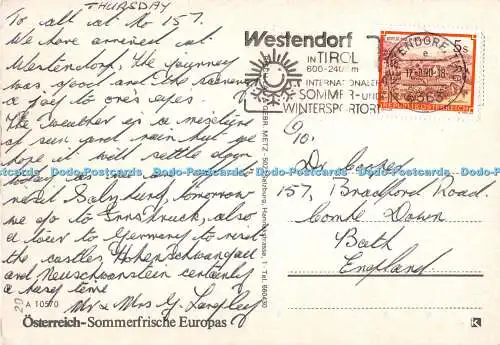 THURSDAY
To all at no 157.
We have arrived at
Westendorf, the journey
was good and the scenery
a joy to one's eyes.
The weather is a mixture
of sun and rain but we
hope it will settle down
today
visit Salzburg, tomorrow
we go to Innsbruck, also
a tour to Germany to visit
the castles Hohenschwangau
and Neuschwanstein certainly
a busy time
Mr & Mrs G. Langley
A 10570
Österreich-Sommerfrische Europas
Westendorf
in TIROL
600-2400 m
INTERNATIONALER
SOMMER- und
WINTERSPORTORT
WESTENDORF, TIROL
6363
5s
REPUBLIK ÖSTERREICH
GEBR. METZ
c/o.
Dr
157, Bradford Road.
Combe Down
Bath
England
Dodo-Postcards Dodo-Postcards Dodo-Postcards Dodo-Postcards